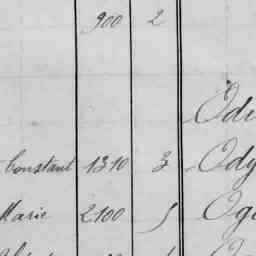 900 2
Odi
Constant 1310 3 Ody
Marie 2100 5 Oge